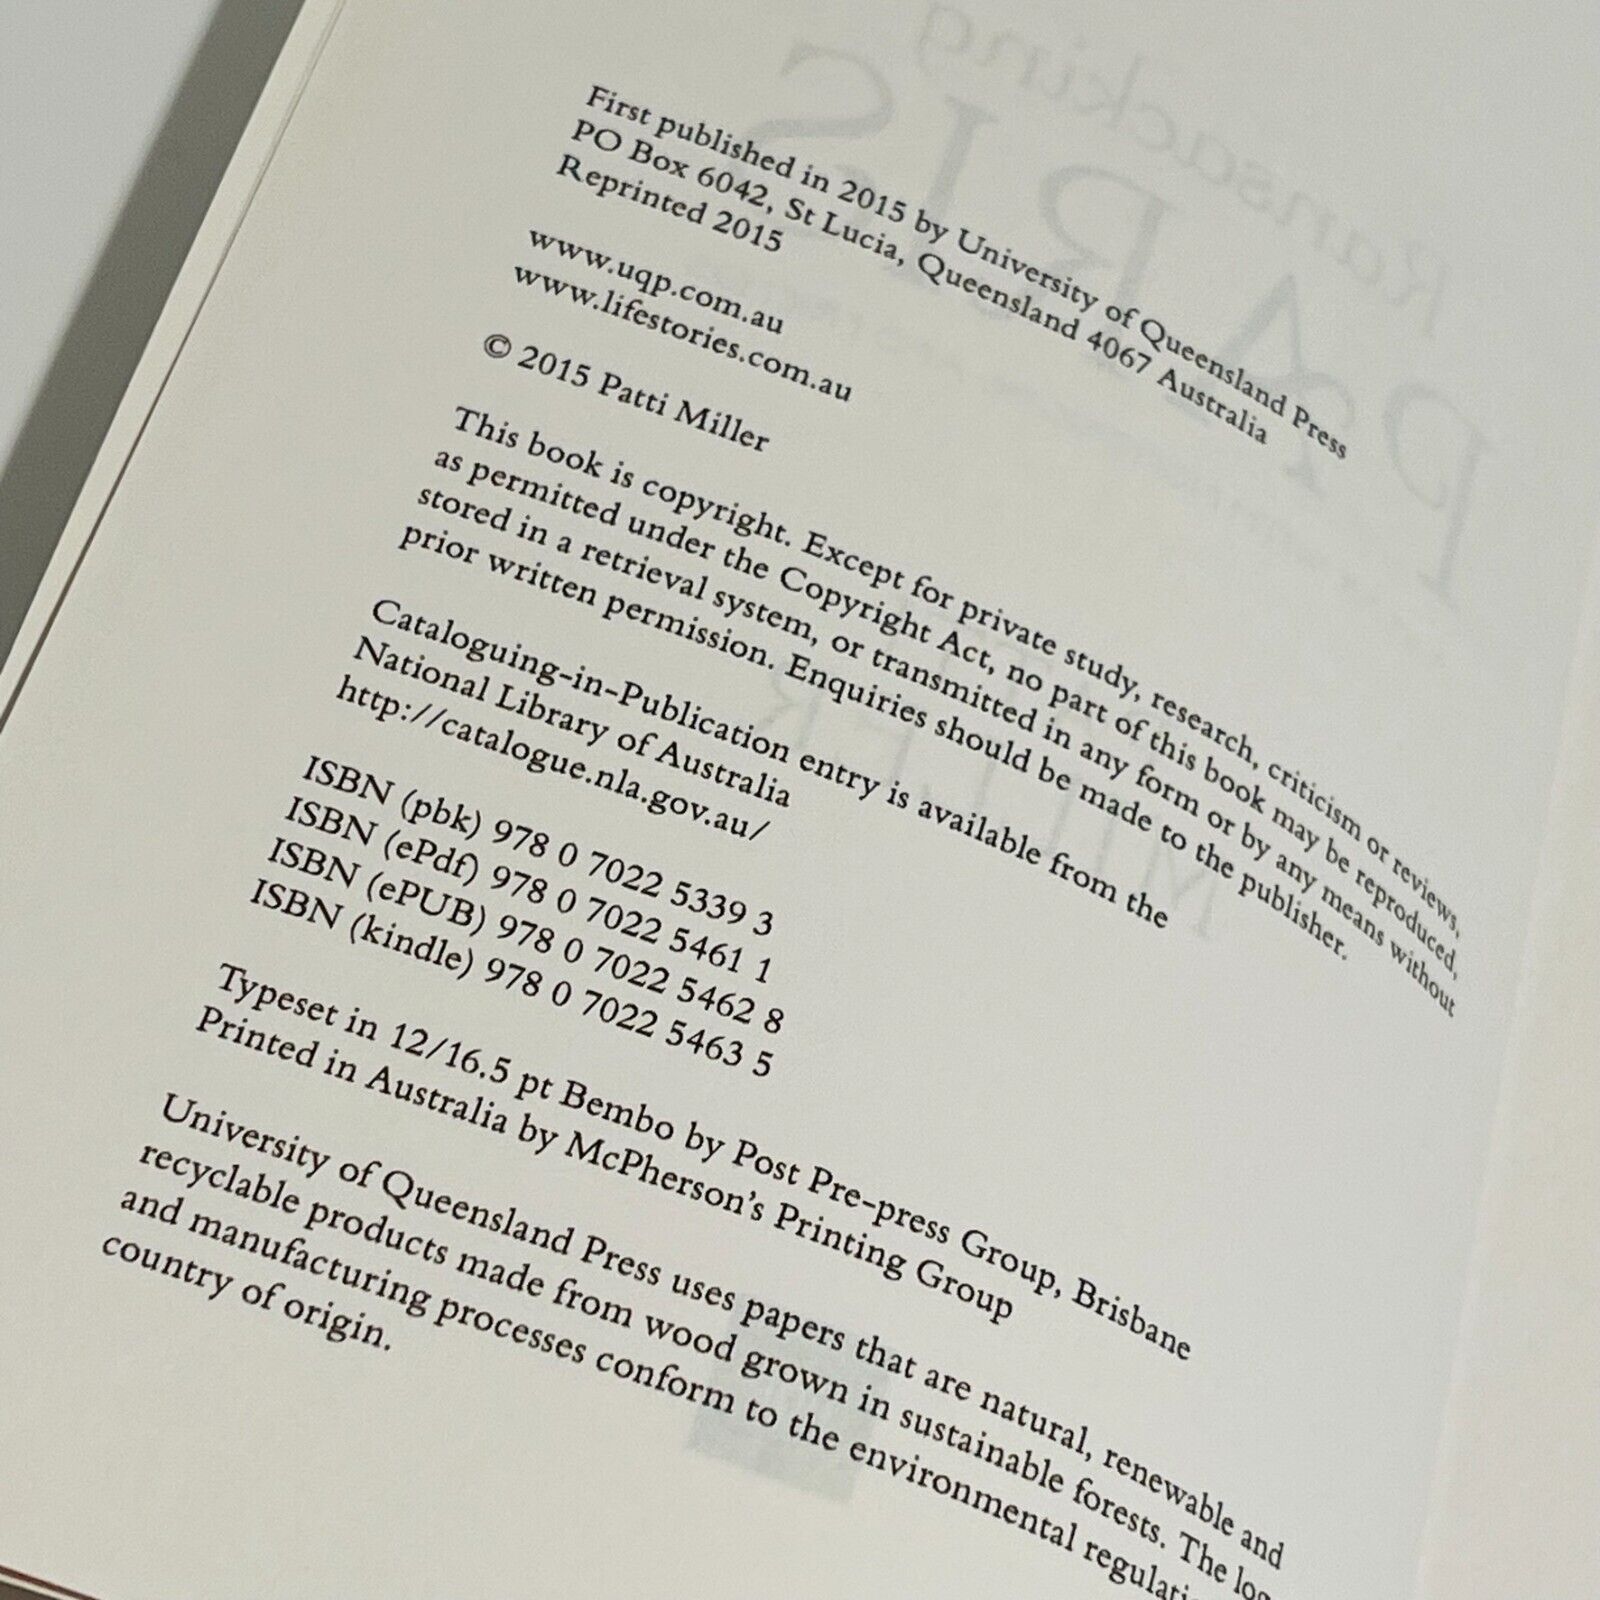 First published in 2015 by University of Queensland Press
PO Box 6042, St Lucia, Queensland 4067 Australia
Reprinted 2015
www.uqp.com.au
www.lifestories.com.au
© 2015 Patti Miller
This book is copyright. Except for private study, research, criticism or reviews,
as permitted under the Copyright Act, no part of this book may be reproduced,
stored in a retrieval system, or transmitted in any form or by any means without
prior written permission. Enquiries should be made to the publisher.
Cataloguing-in-Publication entry is available from the
National Library of Australia
http://catalogue.nla.gov.au/
ISBN (pbk) 978 0 7022 5339 3
ISBN (ePdf) 978 0 7022 5461 1
ISBN (ePUB) 978 0 7022 5462 8
ISBN (kindle) 978 0 7022 5463 5
Typeset in 12/16.5 pt Bembo by Post Pre-press Group, Brisbane
Printed in Australia by McPherson's Printing Group
University of Queensland Press uses papers that are natural, renewable and
recyclable products made from wood grown in sustainable forests. The
and manufacturing processes conform to the environmental
country of origin.